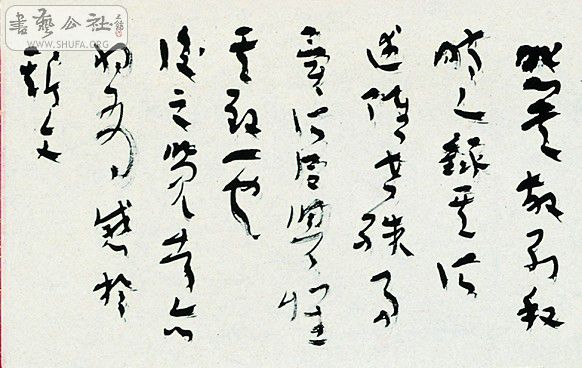 書藝公社
WWW.SHUFA.ORG
悲夫故列叙
時人錄其所
述雖世殊事
異所以興懷
其致一也
後之覽者亦
将有感於
斯文